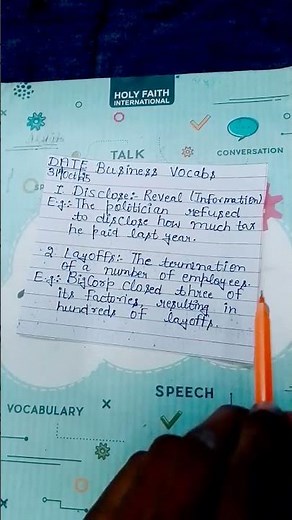 HOLY FAITH
INTERNATIONAL
TALK
CONVERSATION
DATE Business Vocabs
1. Disclose:- Reveal (Information)
E.g:- The politician refused
to disclose how much tax
he paid last year.
2 Layoffs:- The termination
of a number of employees.
E.g:- BigCorp closed three of
its factories, resulting in
hundreds of layoffs.
VOCABULARY
SPEECH